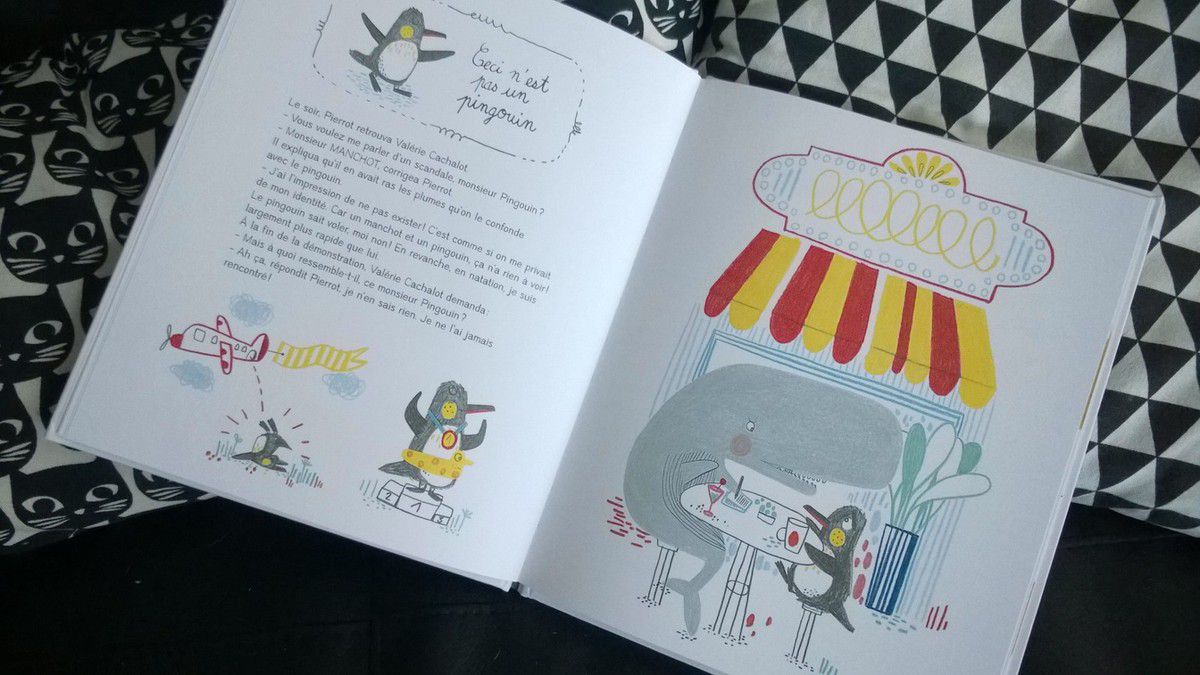 Ceci n'est
pas un
pingouin
Le soir, Pierrot retrouva Valérie Cachalot.
- Vous voulez me parler d'un scandale, monsieur Pingouin ?
- Monsieur MANCHOT, corrigea Pierrot.
Il expliqua qu'il en avait ras les plumes qu'on le confonde
avec le pingouin.
- J'ai l'impression de ne pas exister ! C'est comme si on me privait
de mon identité. Car un manchot et un pingouin, ça n'a rien à voir !
Le pingouin sait voler, moi non ! En revanche, en natation, je suis
largement plus rapide que lui.
À la fin de la démonstration, Valérie Cachalot demanda :
- Mais à quoi ressemble-t-il, ce monsieur Pingouin ?
- Ah ça, répondit Pierrot, je n'en sais rien. Je ne l'ai jamais
rencontré !
2 1 3